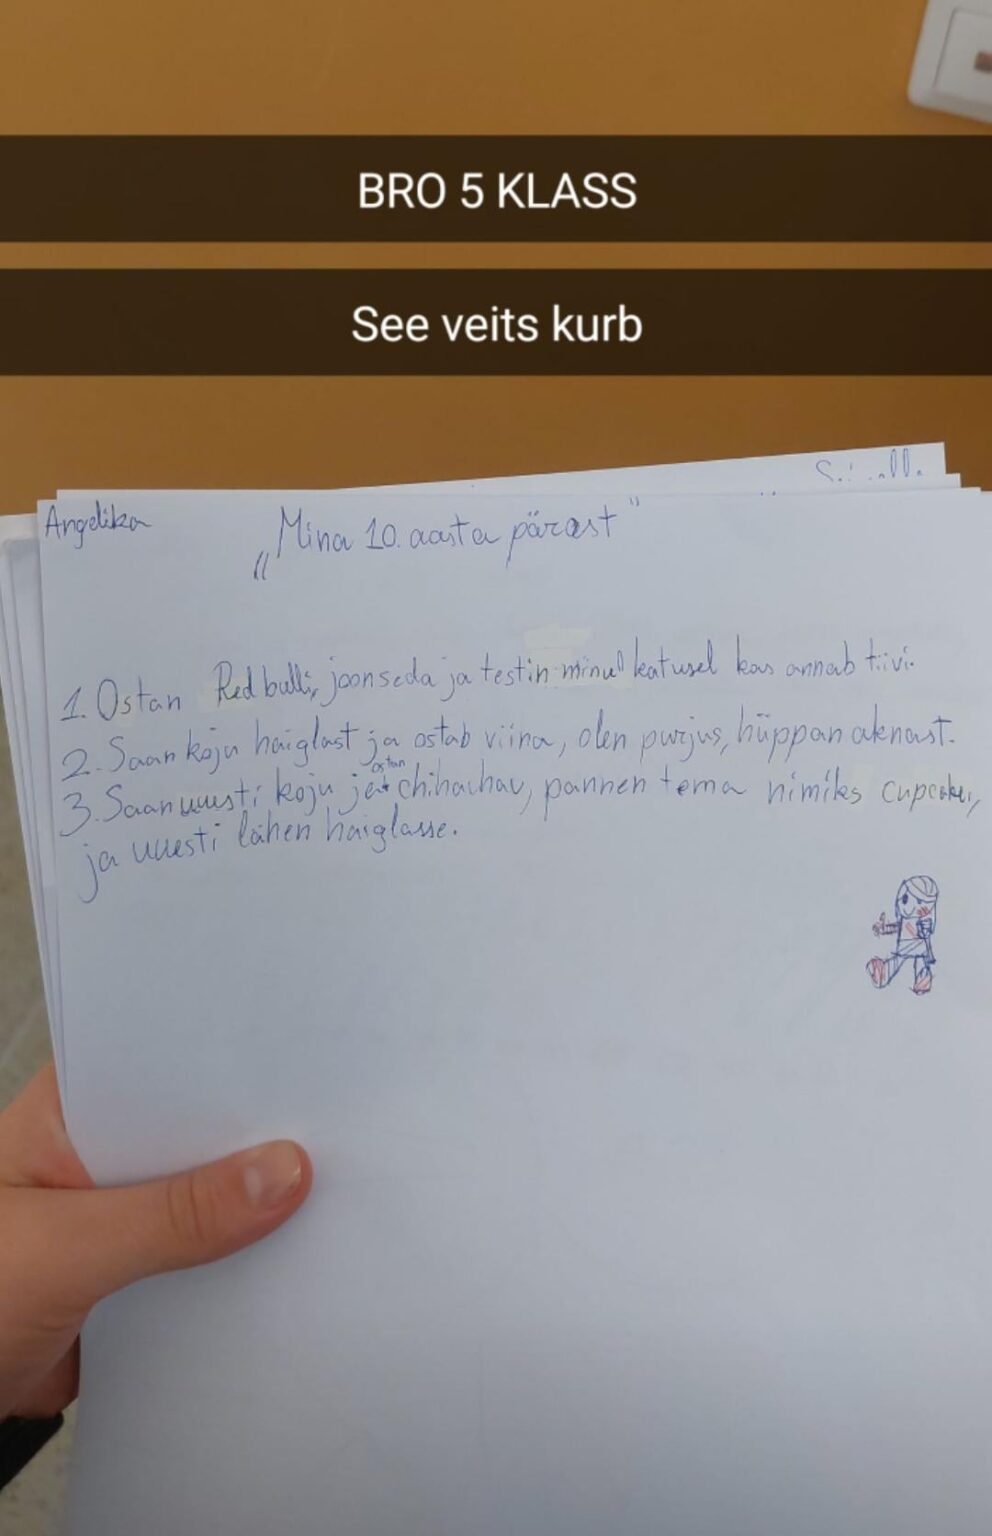 BRO 5 KLASS
See veits kurb
Angelika
„Mina 10. aasta pärast"
1. Ostan Redbulli, joon seda ja testin minul katusel kas annab tiivi.
2. Saan koju haiglast ja ostab viina, olen purjus, hüppan aknast.
ostan
3. Saan uuesti koju ja chihauhau, pannen tema nimiks cupcake,
ja uuesti lähen haiglasse.